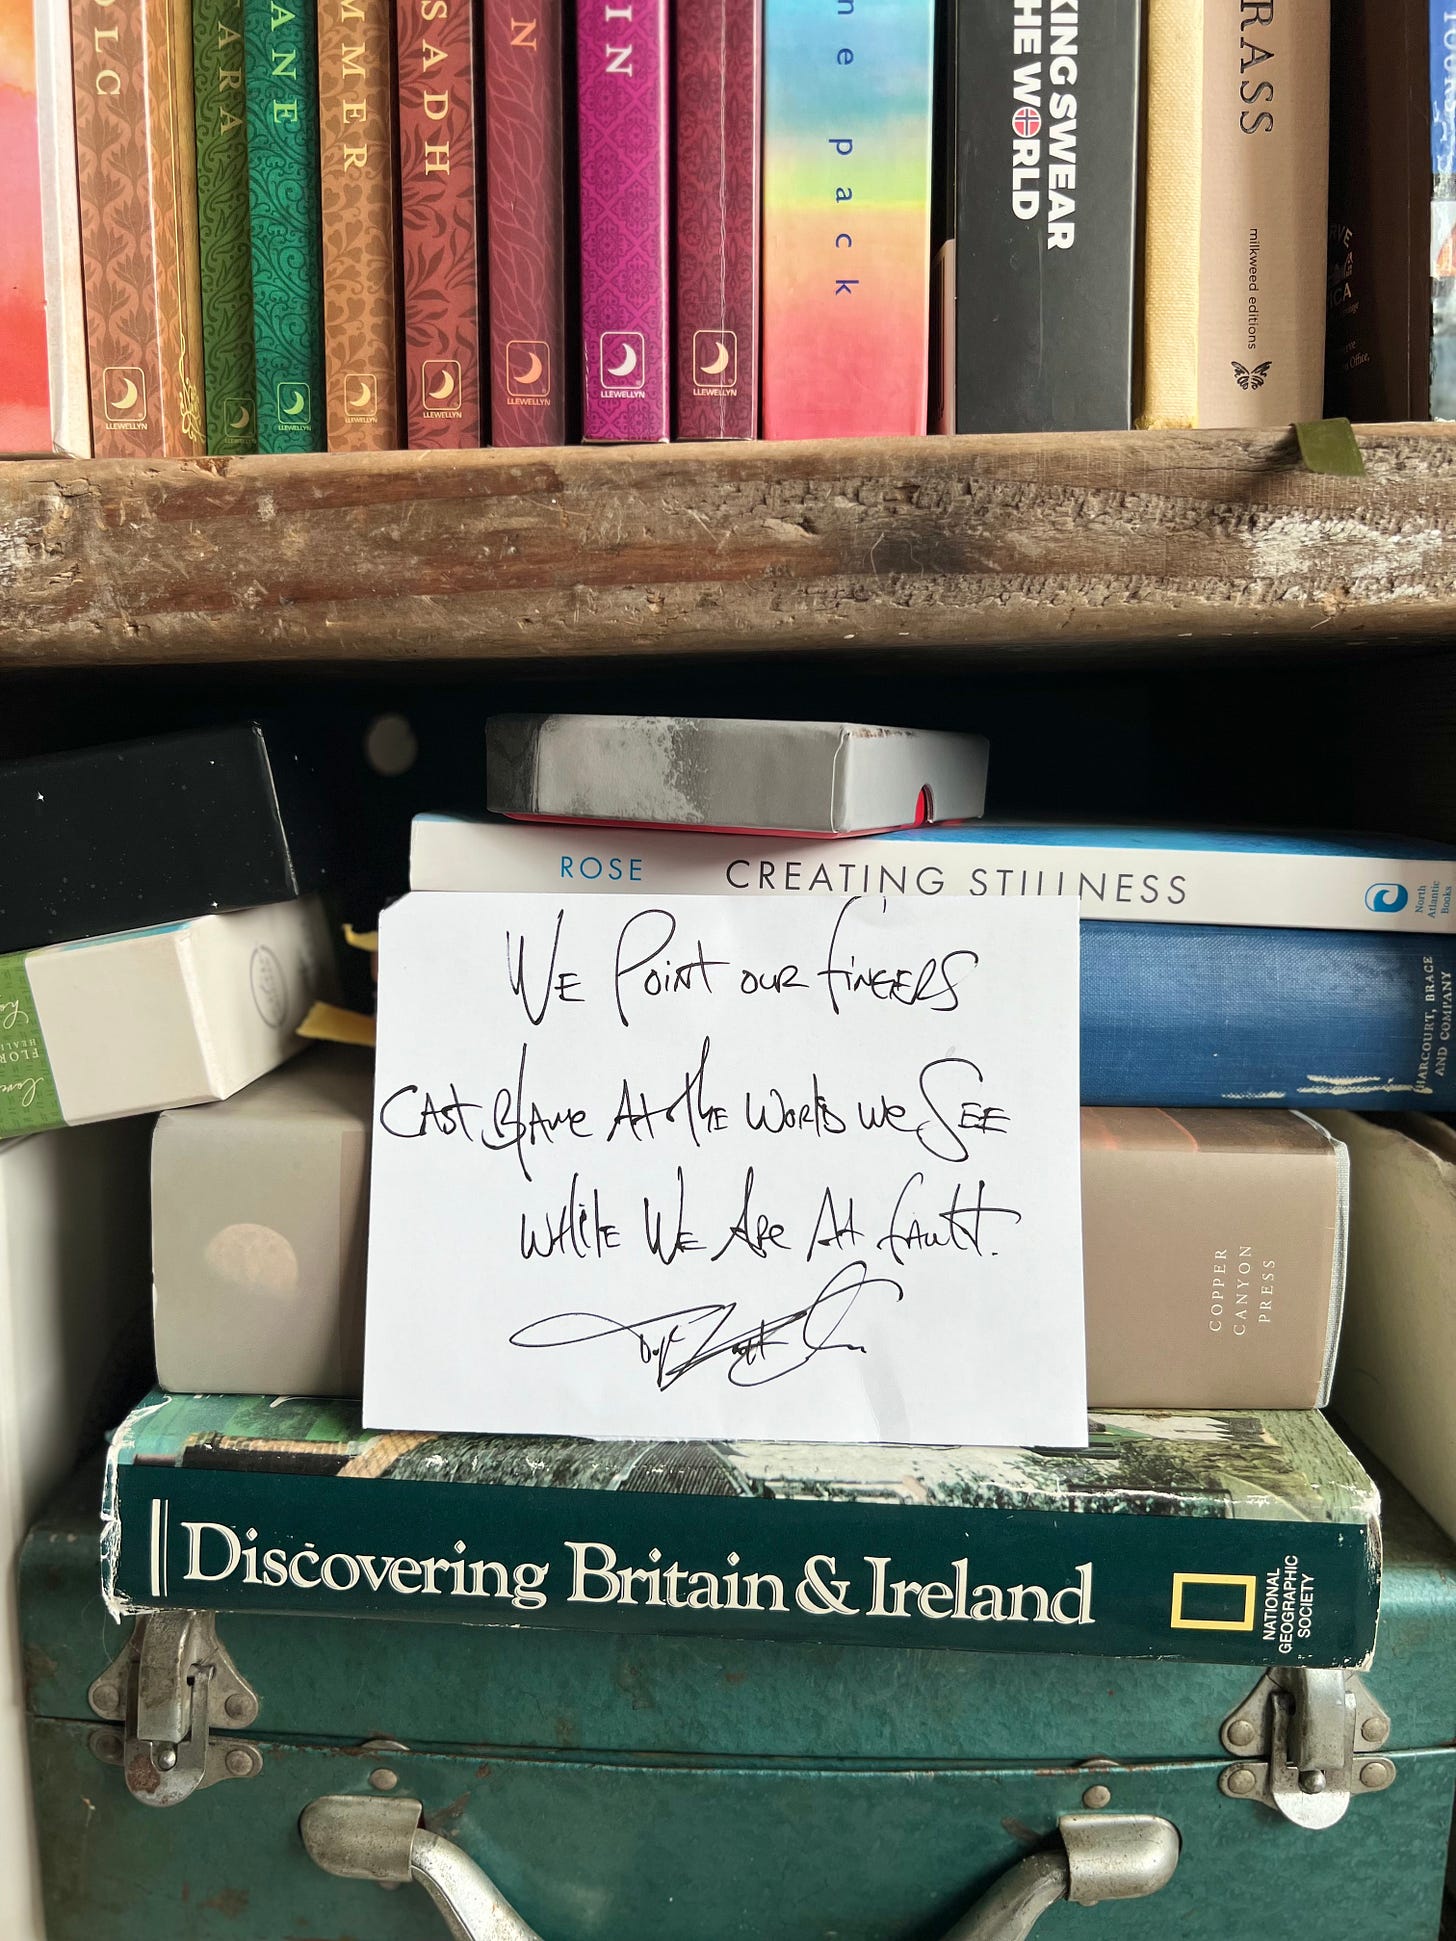 OLC
TARA
ANE
MMER
SADH
N
IN
ne pack
KING SWEAR
HE WORLD
RASS
milkweed editions
RVE
ICA
Office,
LLEWELLYN
LLEWELLYN
LLEWELLYN
LLEWELLYN
LLEWELLYN
LLEWELLYN
LLEWELLYN
LLEWELLYN
ROSE CREATING STILLNESS
North
Atlantic
Books
HARCOURT, BRACE
AND COMPANY
FLOR
HEALI
love
WE POINT OUR FINGERS
CAST BLAME AT THE WORLD WE SEE
WHILE WE ARE AT FAULT.
COPPER
CANYON
PRESS
Discovering Britain & Ireland
NATIONAL
GEOGRAPHIC
SOCIETY